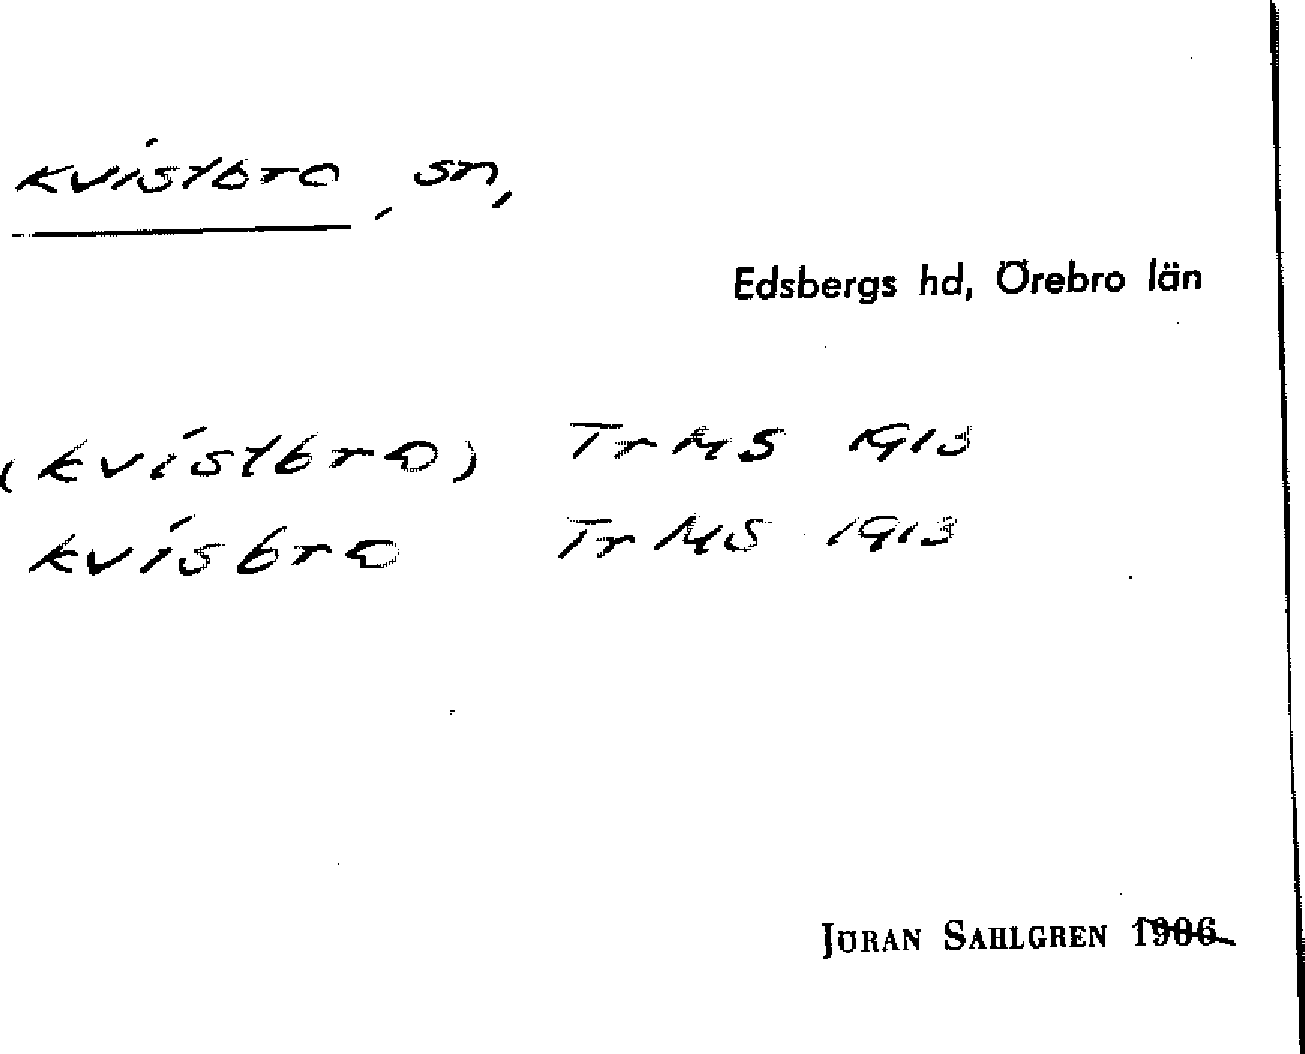 Kvistbro, sn,
Edsbergs hd, Örebro län
(Kvistbro) Tr MS 1913
Kvisbro Tr MS 1913
JÖRAN SAHLGREN 1906